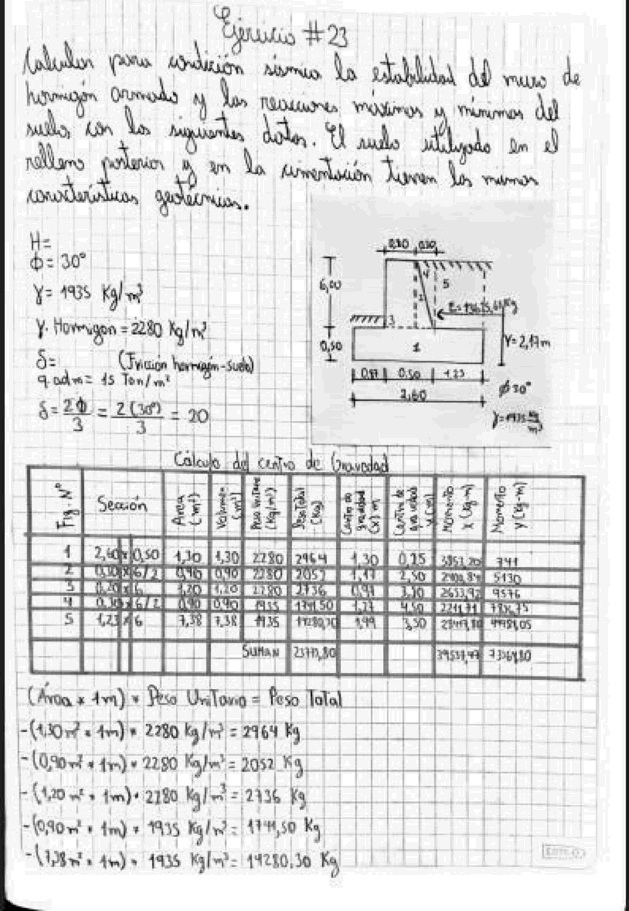 Ejercicio #23
Calcular para condición sísmica la estabilidad del muro de
hormigón armado y las reacciones máximas y mínimas del
suelo con los siguientes datos. El suelo utilizado en el
relleno posterior y en la cimentación tienen las mismas
características geotécnicas.
H=
Φ = 30°
γ = 1935 Kg/m³
γ. Hormigon = 2280 Kg/m³
δ = (Fricción hormigón-suelo)
q.adm = 15 Ton/m²
δ = 2Φ/3 = 2(30°)/3 = 20
0,20 0,30
6,00
0,50
4
5
2
3
1
Y = 2,17m
0,50 1.23
2,60
Ø 30°
γ = 1935 Kg/m³
Cálculo del centro de Gravedad
Fig. N° Sección Área (m²) Volumen (m³) Peso Unitario (Kg/m³) Peso Total (Kg) Centro de gravedad (x) m Centro de gravedad Y (m) Momento X (Kg-m) Momento Y (Kg-m)
1 2,60 x 0,50 1,30 1,30 2280 2964 1,30 0,25 3853,20 741
2 0,30 x 6/2 0,90 0,90 2280 2052 1,17 2,50 5130
3 0,20 x 6 1,20 1,20 2280 2736 0,97 3,50 2653,92 9576
4 0,30 x 6/2 0,90 0,90 1935 1741,50 1,27 4,50 2211,71 7836,75
5 1,23 x 6 7,38 7,38 1935 14280,30 1,99 3,50
SUMAN
(Área * 1m) * Peso Unitario = Peso Total
-(1,30 m² * 1m) * 2280 Kg/m³ = 2964 Kg
-(0,90 m² * 1m) * 2280 Kg/m³ = 2052 Kg
-(1,20 m² * 1m) * 2280 Kg/m³ = 2736 Kg
-(0,90 m² * 1m) * 1935 Kg/m³ = 1741,50 Kg
-(7,38 m² * 1m) * 1935 Kg/m³ = 14280,30 Kg